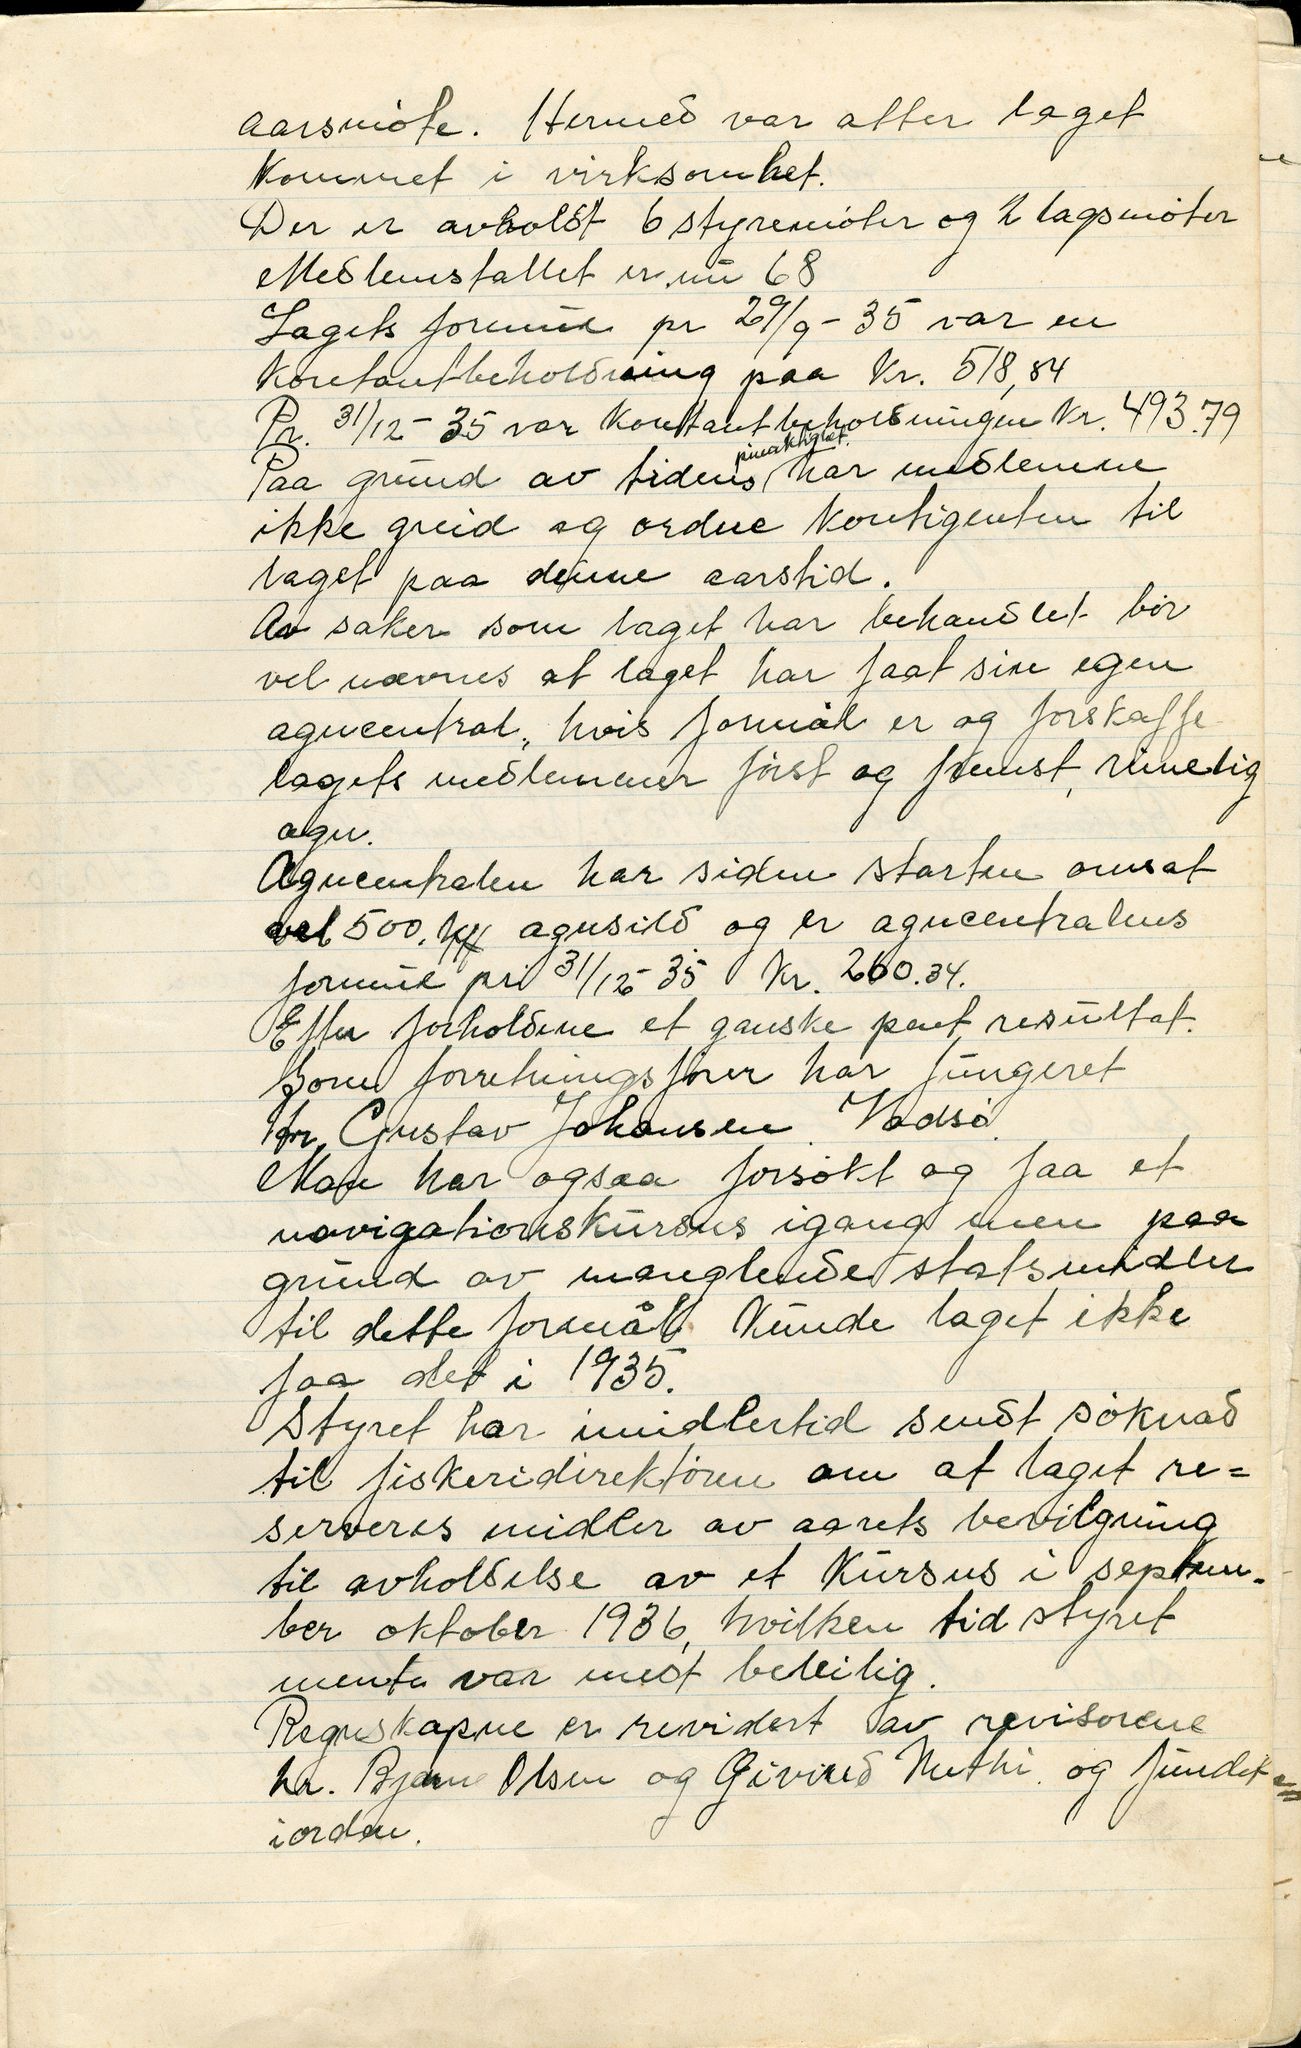 aarsmöte. Hermed var atter laget
kommet i virksomhet.
Der er avholdt 6 styremöter og 2 lagsmöter
Medlemstallet er nu 68
Lagets formue pr 29/9 - 35 var en
kontantbeholdning paa Kr. 518,84
Pr. 31/12 - 35 var kontantbeholdningen Kr. 493.79
Paa grund av tidens har medlemene
ikke greid og ordne kontigenten til
laget paa denne aarstid.
Av saker som laget har behandlet bör
vel nævnes at laget har faat sin egen
agncentral, hvis formål er og forskaffe
lagets medlemmer först og fremst, rimelig
agn.
Agncentralen har siden starten omsat
vel 500. agnsild og er agncentralens
formue pri 31/12 - 35 Kr. 260.34.
Efter forholdene et ganske pent resultat.
Som forretningsförer har fungeret
hr. Gustav Johansen Vadsö.
Man har ogsaa forsökt og faa et
navigationskursus igang men paa
grund av manglende statsmidler
til dette formål kunde laget ikke
faa det i 1935.
Styret har imidlertid sendt söknad
til fiskeridirektören om at laget re=
serveres midler av aarets bevilgning
til avholdelse av et kursus i septem-
ber oktober 1936, hvilken tid styret
mente var mest beleilig.
Regnskapne er revidert av revisorene
hr. Bjarne Olsen og og fundet
iorden.